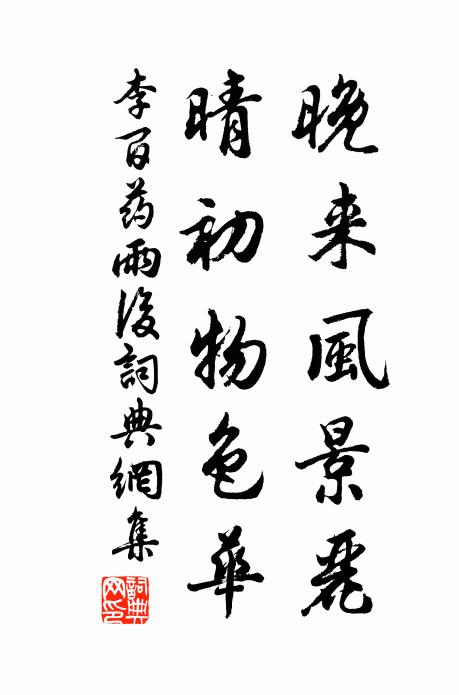 晚来風景麗
晴初物色華
李百药雨後詞典網集
詞典网印